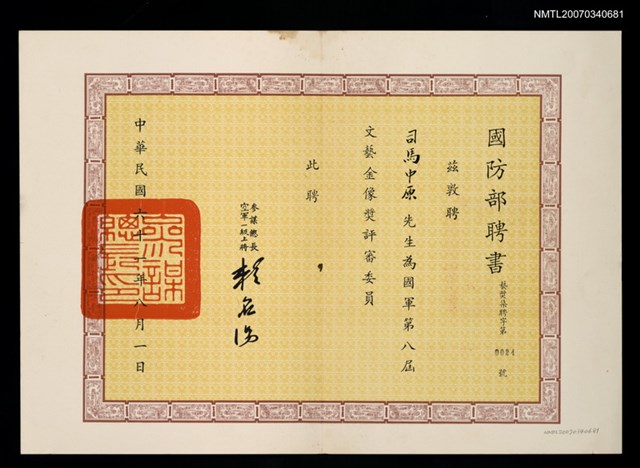 NMTL20070340681
國防部聘書
藝獎榮聘字第
號
茲敦聘
司馬中原先生為國軍第八屆
文藝金像獎評審委員
此聘
參謀總長
空軍一級上將
賴名湯
中華民國六十一年八月一日